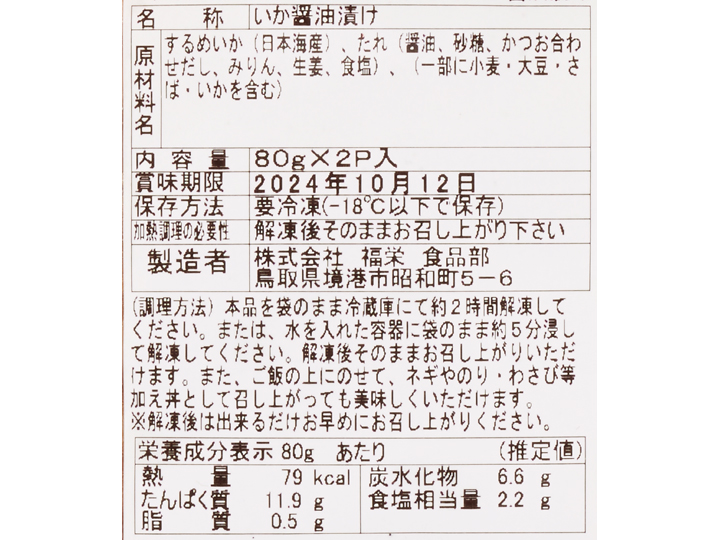 名称 いか醤油漬け
原材料名 するめいか（日本海産）、たれ（醤油、砂糖、かつお合わ
せだし、みりん、生姜、食塩）、（一部に小麦・大豆・さ
ば・いかを含む）
内容量 80g×2P入
賞味期限 2024年10月12日
保存方法 要冷凍(-18℃以下で保存)
加熱調理の必要性 解凍後そのままお召し上がり下さい
製造者 株式会社 福栄 食品部
鳥取県境港市昭和町5-6
(調理方法) 本品を袋のまま冷蔵庫にて約2時間解凍して
ください。または、水を入れた容器に袋のまま約5分浸し
て解凍してください。解凍後そのままお召し上がりいただ
けます。また、ご飯の上にのせて、ネギやのり・わさび等
加え丼として召し上がっても美味しくいただけます。
※解凍後は出来るだけお早めにお召し上がりください。
栄養成分表示 80g あたり (推定値)
熱量 79 kcal 炭水化物 6.6 g
たんぱく質 11.9 g 食塩相当量 2.2 g
脂質 0.5 g